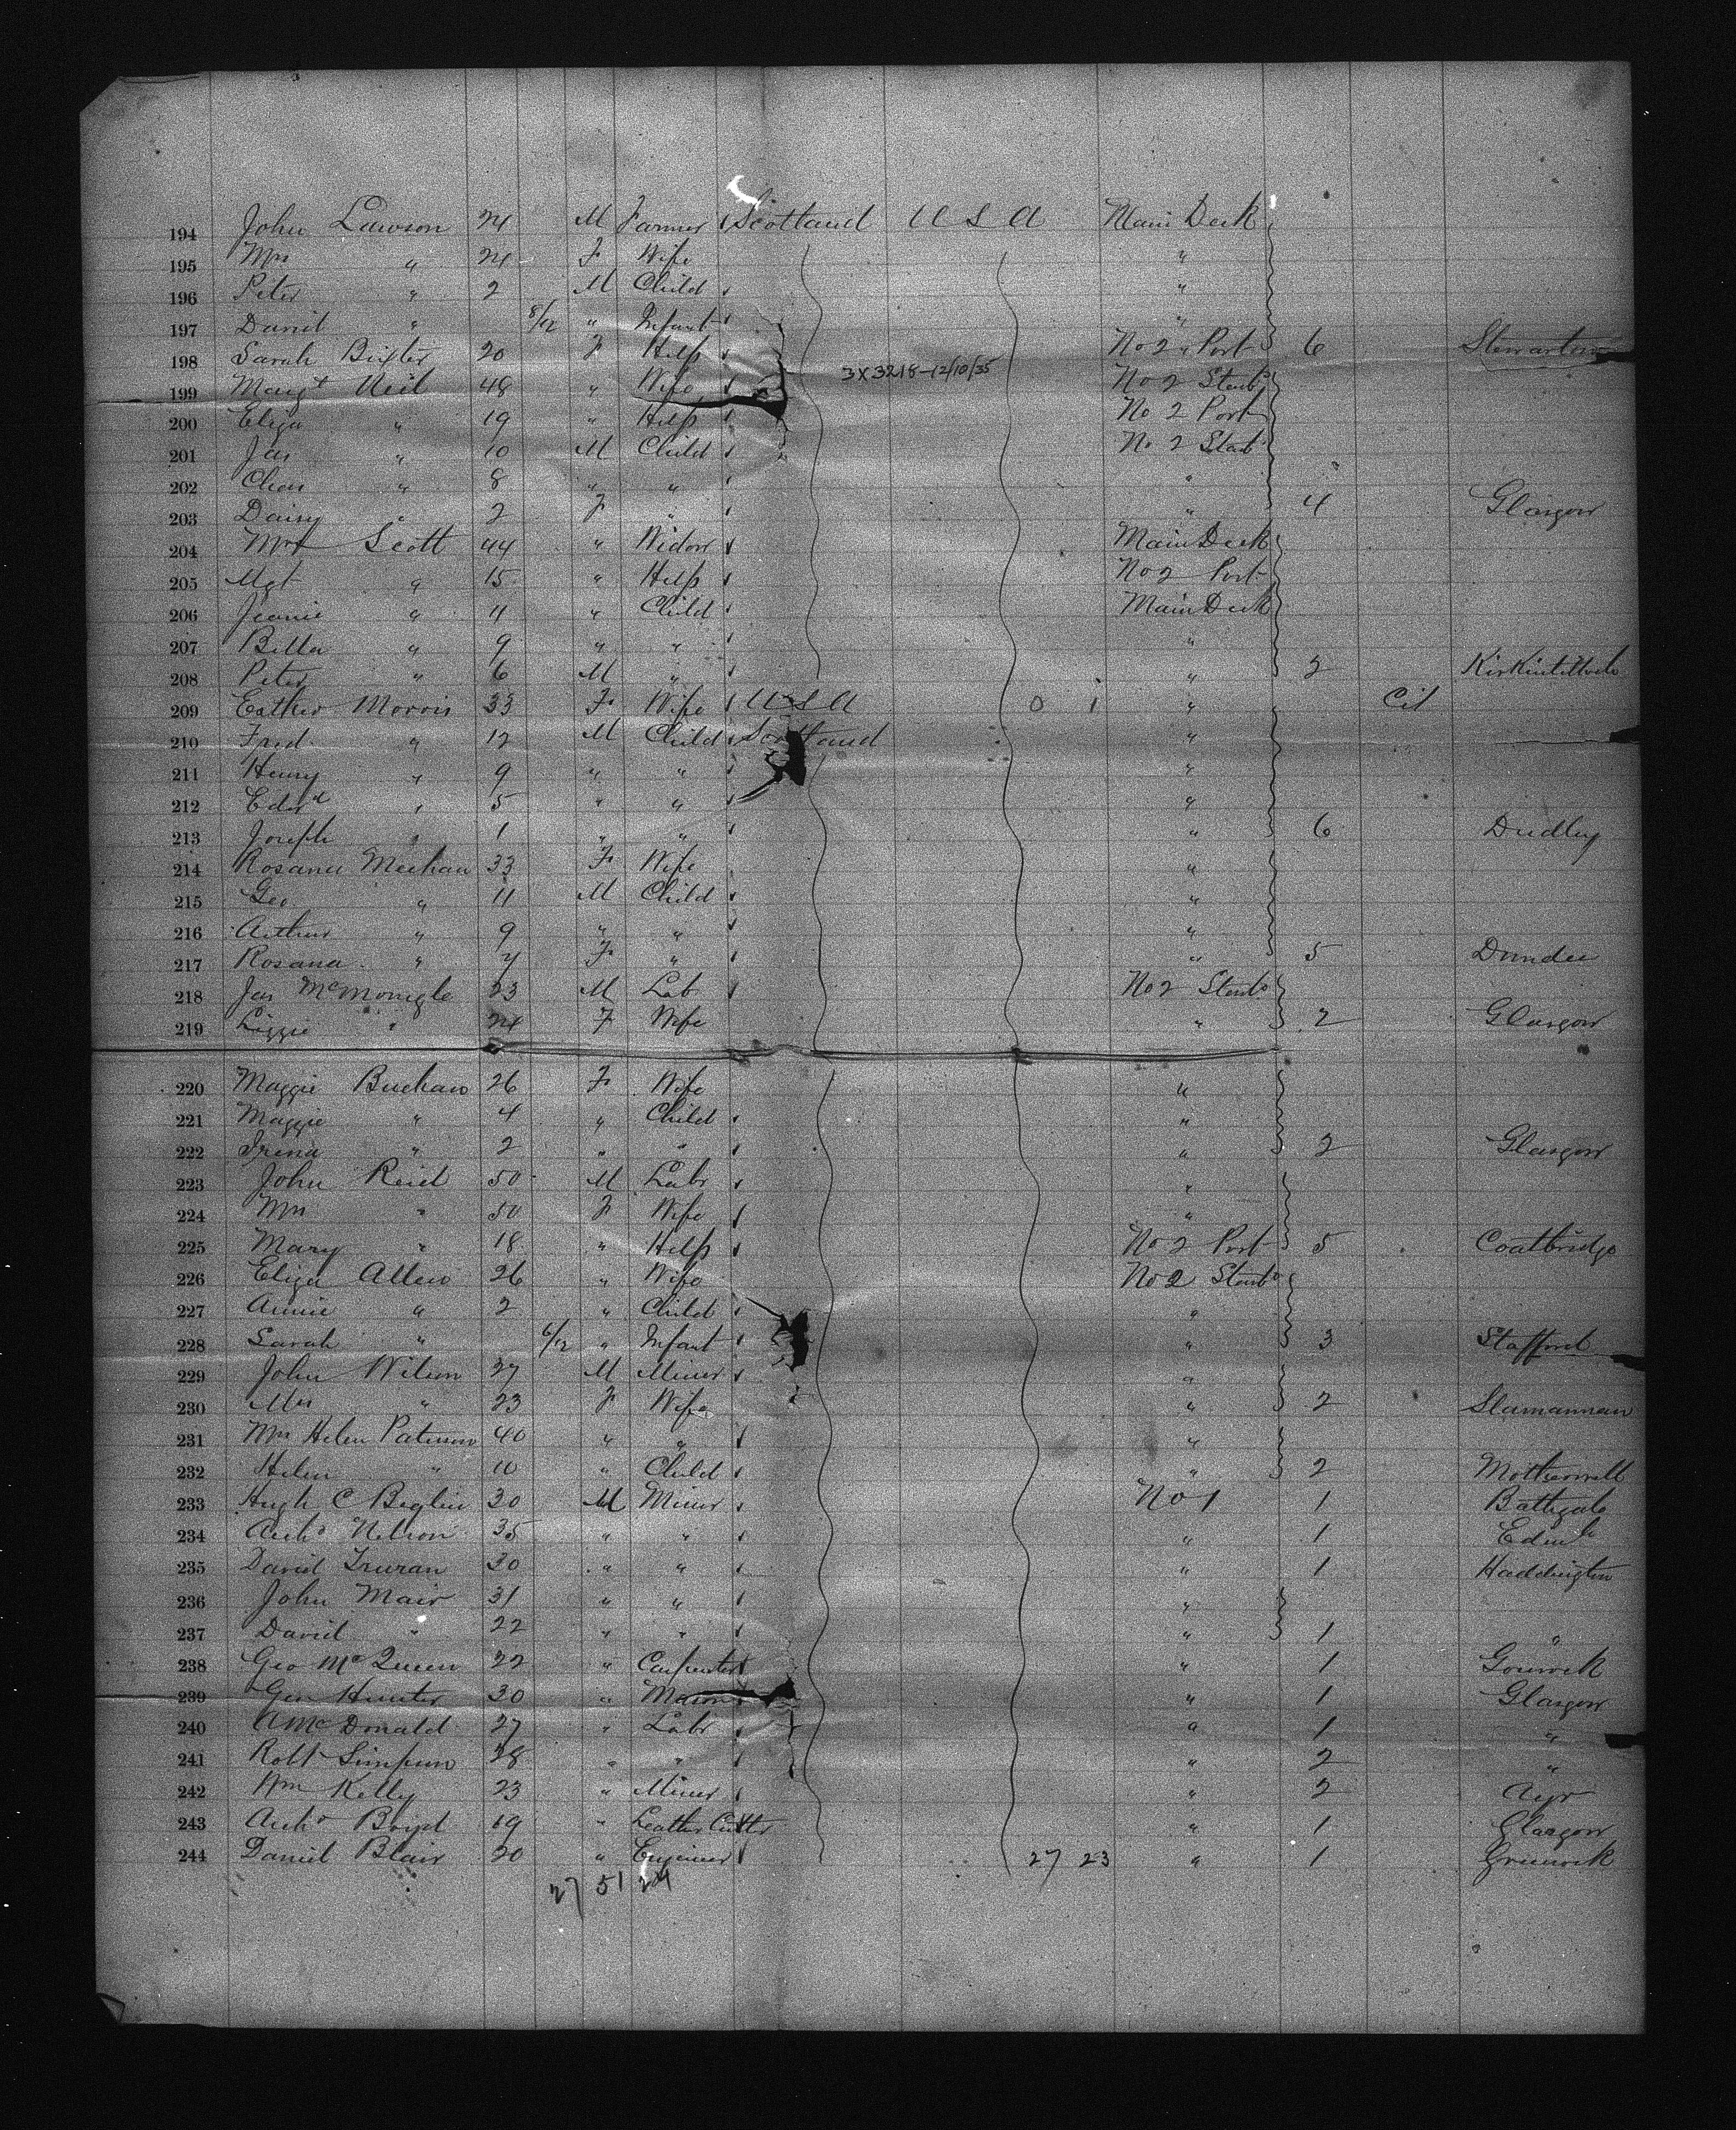 194 John Lawson 24 M Farmer Scotland U S A Main Deck
195 Mrs " 24 F Wife "
196 Peter " 2 M Child "
197 David " 8/12 " Infant "
198 Sarah 20 F Help No 2 " Port 6 Stewarton
3X3218-12/10/35
199 Margt Neil 48 " Wife No 2 Starb
200 Eliza " 19 " Help No 2 Port
201 Jas " 10 M Child No 2 Starb
202 Chas " 8 " " "
203 Daisy " 2 F " " 4 Glasgow
204 Mrs Scott 44 " Widow Main Deck
205 Mgt " 15 " Help No 2 Port
206 Jeanie " 11 " Child Main Deck
207 Bella " 9 " " "
208 Peter " 6 M " " 2 Kirkintilloch
209 Esther Morris 33 F Wife U S A 0 1 " Cit
210 Fred " 12 M Child Scotland "
211 Henry " 9 " " "
212 Edwd " 5 " " "
213 Joseph " 1 " " " 6 Dudley
214 Rosana Meehan 33 F Wife "
215 Geo " 11 M Child "
216 Arthur " 9 " " "
217 Rosana " F " " 5 Dundee
218 Jas McMonigle 23 M Lab No 2 Starb
219 Lizzie " 24 F Wife " 2 Glasgow
220 Maggie Buchan 26 F Wife "
221 Maggie " 4 " Child "
222 " 2 " " " 2 Glasgow
223 John Reid 50 M Labr "
224 Mrs " 50 F Wife "
225 Mary " 18 " Help No 2 Port 5 Coatbridge
226 Eliza Allen 26 " Wife No 2 Starb
227 Annie " 2 " Child "
228 Sarah " 6/12 " Infant " 3 Stafford
229 John Wilson 27 M Miner "
230 Mrs " 23 F Wife " 2 Slamannan
231 Mrs Helen Paterson 40 " " "
232 Helen " 10 " Child " 2 Motherwell
233 Hugh C Beglin 30 M Miner No 1 1 Bathgate
234 Archd Nelson 35 " " " 1 Edinh
235 David Truran 30 " " " 1 Haddington
236 John Mair 31 " " "
237 David " 22 " " " 1 "
238 Geo McQueen 22 " Carpenter " 1 Gourock
239 Geo Hunter 30 " Mason " 1 Glasgow
240 A McDonald 27 " Labr " 1 "
241 Robt Simpson 28 " " " 2 "
242 Wm Kelly 23 " Miner " 2 Ayr
243 Archd Boyd 19 " Leather Cutter " 1 Glasgow
244 Daniel Blair 20 " Engineer 27 23 " 1 Greenock
27 51 24